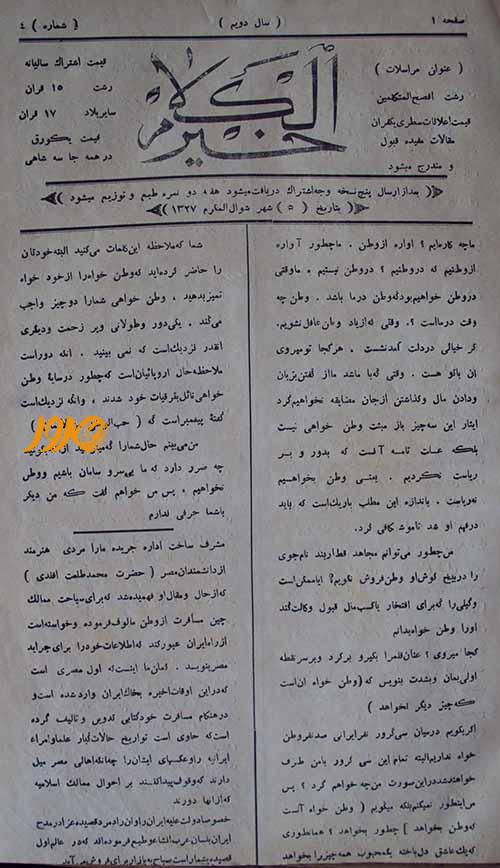 صفحه ۱
( سال دویم )
( شماره ) ٤
( عنوان مراسلات )
رشت افصح المتکلمین
قیمت اعلانات سطری یکقران
مقالات مفیده قبول
و مندرج میشود
خیر الکلام
قیمت اشتراك سالیانه
رشت ۱۵ قران
سایر بلاد ۱۷ قران
قیمت یکورق
در همه جا سه شاهی
بعد از ارسال پنج نسخه وجه اشتراك دریافت میشود هفته دو نمره طبع و توزیع میشود
بتاریخ ( ۵ ) شهر شوال المکرم ۱۳۲۷
ما چه کاره‌ایم ؟ اواره از وطن . ما چطور آواره
از وطنیم که در وطنیم ؟ در وطن نیستیم ، ما وقتی
در وطن خواهیم بود که وطن در ما باشد . وطن چه
وقت در ما است ؟. وقتی که از یاد وطن غافل نشویم.
کر خیالی در دلت آمد نشست ، هر کجا تو میروی
ان با تو هست . وقتی که با ما شد ما از گفتن بزبان
و دادن مال و گذاشتن از جان مضایقه نخواهیم کرد
ایثار این سه چیز باز مثبت وطن خواهی نیست
بلکه علت تامه آنست که بدور و بر
ریاست نکردیم . یعنی وطن بخواهیم
نه ریاست . باندازه این مطلب باریك است که باید
در فهم او شد نا موشکافی کرد.
من چطور می‌توانم مجاهد قطار بند نام جوی
را در پیخ گوش او وطن فروش نگویم؟ ایا ممکن است
وکیلی را که برای افتخار یا کسب مال قبول وکالت کند
اورا وطن خواه بدانم
کجا میروی ؟ عنان قلم را بگیر و برگرد و بر سر نقطه
اولی بمان و بشدت بنویس که (وطن خواه ان است
که چیز دیگر نخواهد )
اگر بگویم در میان سی کرور نفر ایرانی صد نفر وطن
خواه نداریم البته تمام این سی کرور با من طرف
خواهند شد در این صورت من چه خواهم کرد ؟ پس
من اینطور نمیگویم بلکه میگویم ( وطن خواه آنست
که وطن بخواهد ) چطور بخواهد ؟ همانطوری
که یك عاشق دل باخته یك محبوب همه چیز را بخواهد
شما که ملاحظه این نامات می کنید البته خودتان
را حاضر کرده‌اید که وطن خواه را از خود خواه
تمیز بدهید ، وطن خواهی شما را دو چیز واجب
می کند . یکی دور و طولانی و پر زحمت و دیگری
انقدر نزدیك است که نمی بینید . انکه دور است
ملاحظه حال اروپائیان است که چطور در سایه وطن
خواهی نائل بترقیات خود شدند ، و انکه نزدیك است
گفتهٔ پیغمبر است که
من می‌بینم حال شما را
چه ضرر دارد که ما بی سر و سامان باشیم و وطن
نخواهیم ، پس من خواهم گفت که من دیگر
با شما حرفی ندارم
مشرف ساخت اداره جریده ما را مردی هنرمند
از دانشمندان مصر ( حضرت محمد طلعت افندی )
که از حال و مقال او فهمیده شد که برای سیاحت ممالك
چین مسافرت از وطن مالوف فرموده و خواسته است
از راه ایران عبور کند که اطلاعات خود را برای جراید
مصر بنویسد . گمان ما اینست که اول مصری است
که در این اوقات اخیره بخاك ایران وارد شده است و
در هنگام مسافرت خود کتابی تدوین و تالیف کرده
است که حاوی است تواریخ حالات کبار علما و امراء
ایرانیه را و عکسهای ایشان را چه انکه اهالی مصر میل
دارند که وقوف پیدا کنند بر احوال ممالك اسلامیه
که از انها دورند
خصوصا دولت علیه ایران را و ان راد مرد قصیده عزا در مدح
ایران بلسان عرب انشا و طبع فرموده اند که در عالم اول